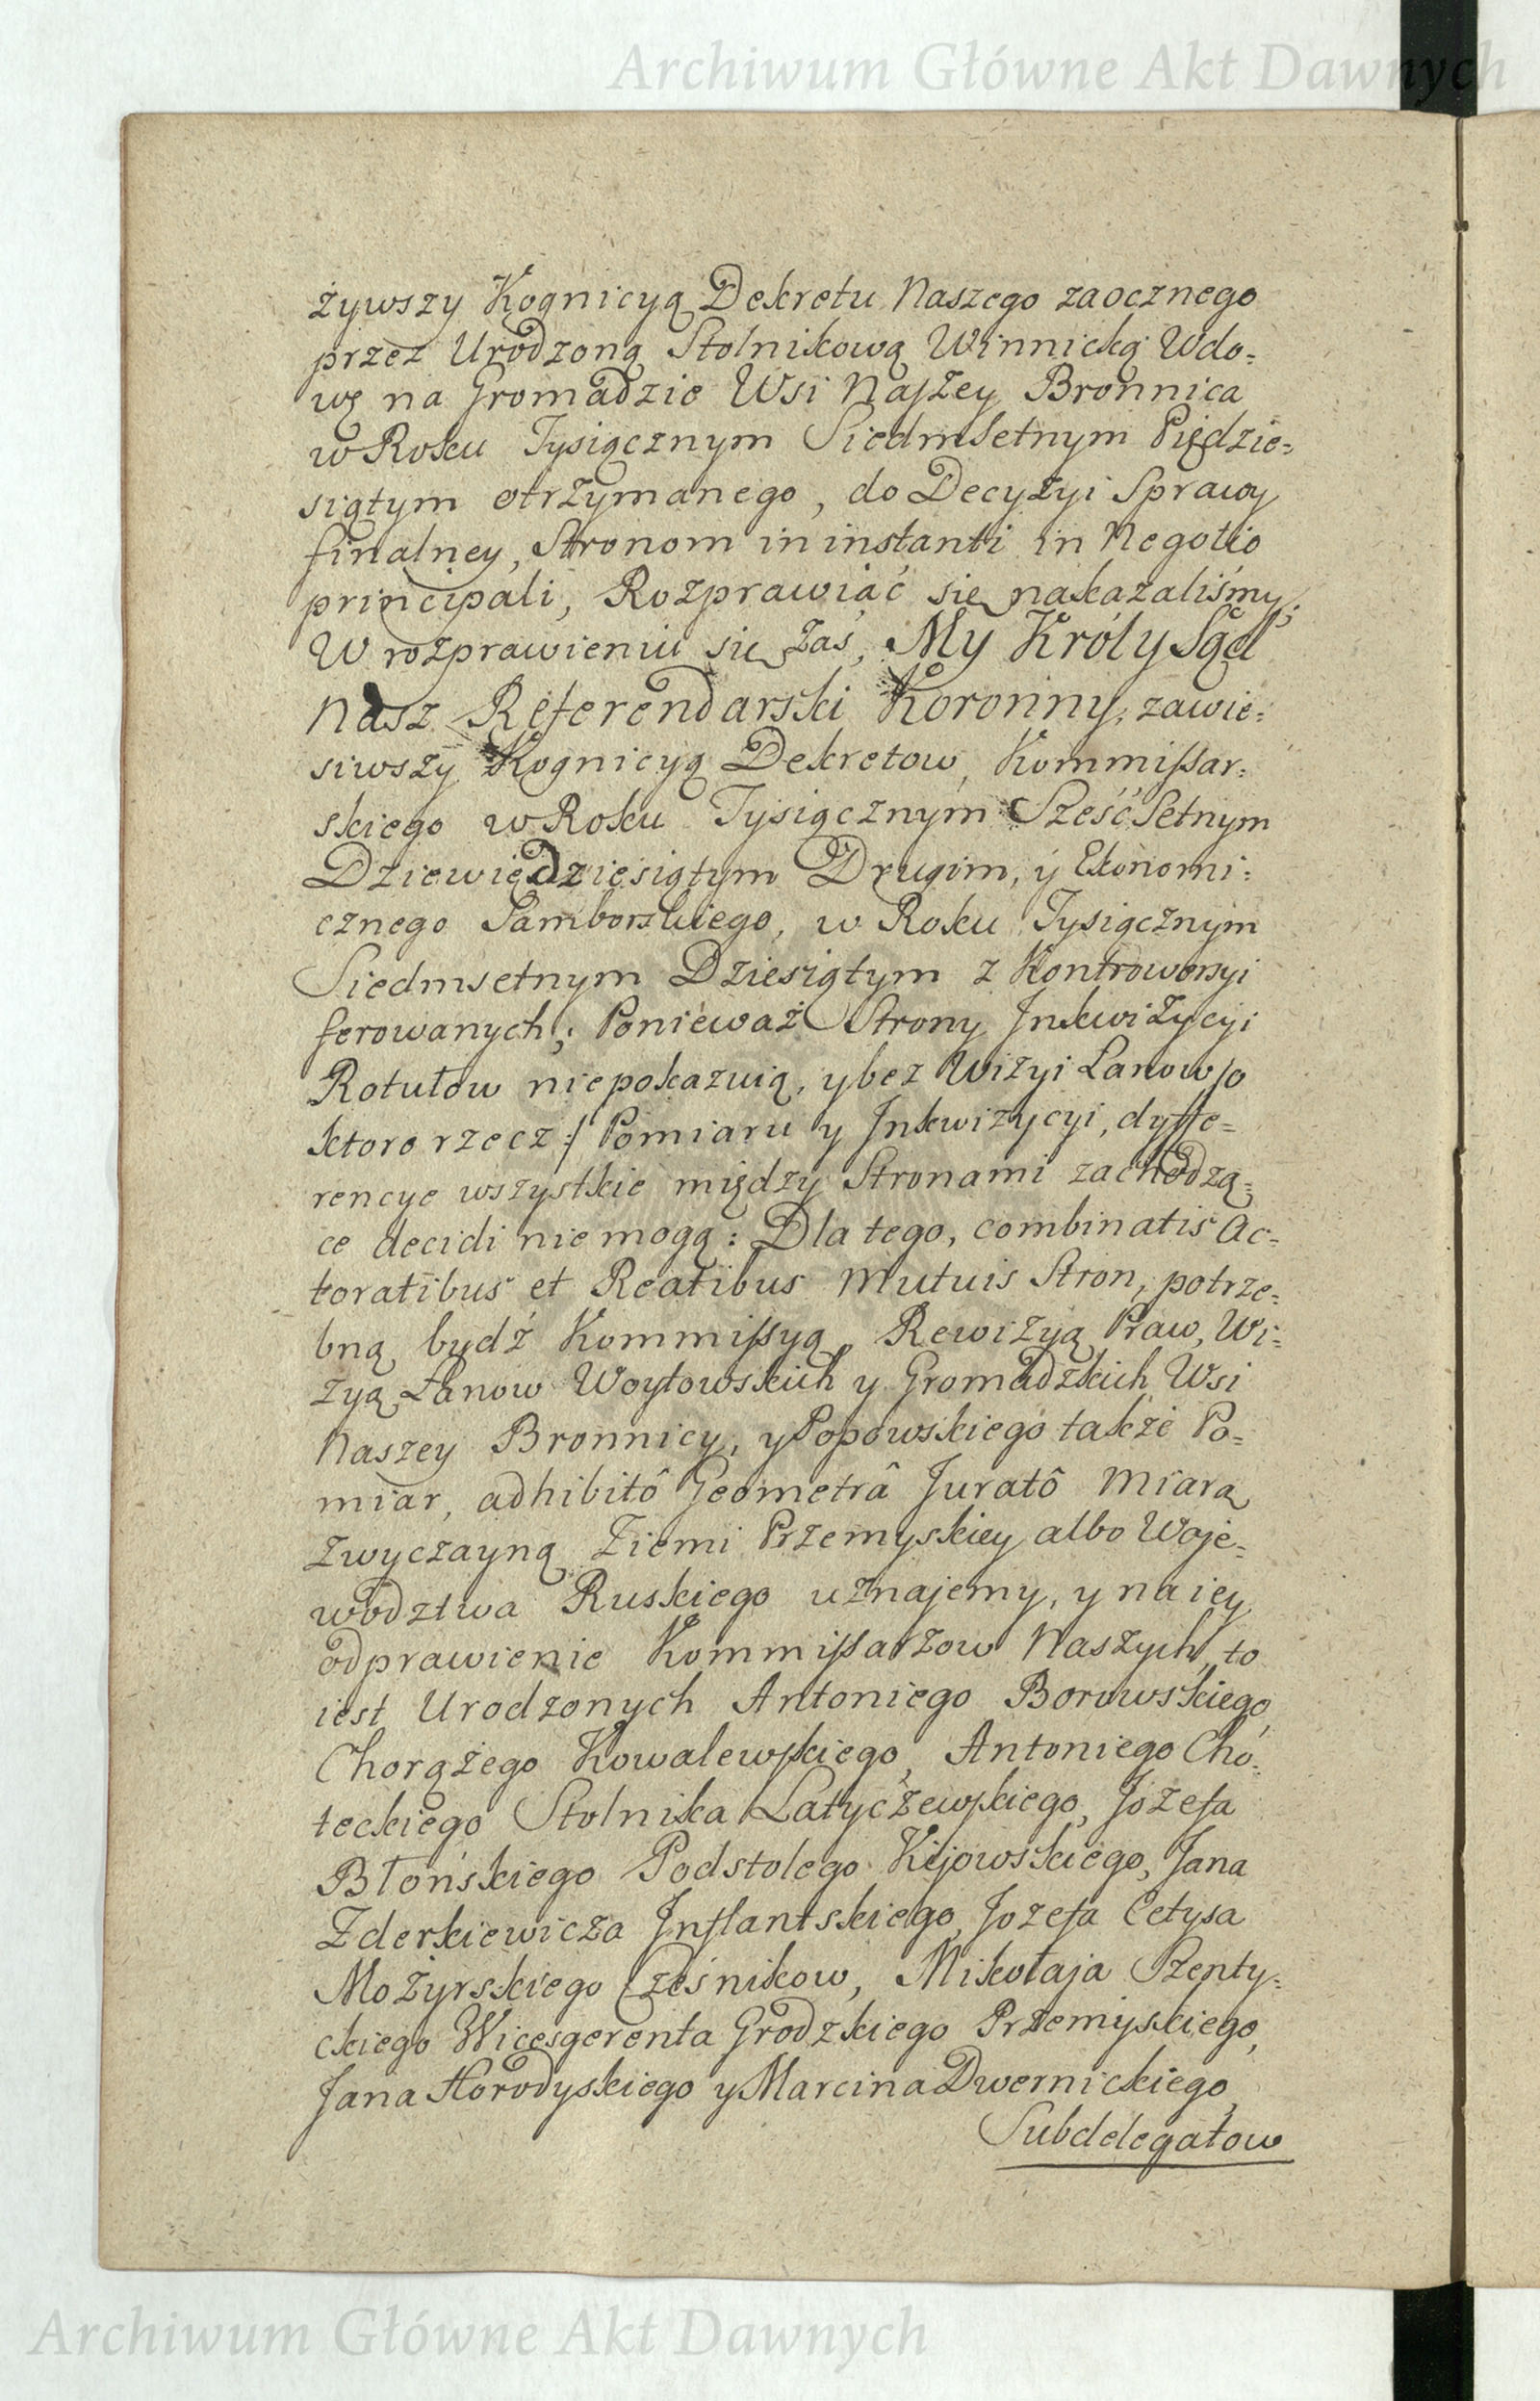 Archiwum Główne Akt Dawnych
żywszy Kognicyą Dekretu Naszego zaocznego
przez Urodzoną Stolnikową Winnicką Wdo=
wę na Gromadzie Wsi Naszey Bronnica
w Roku Tysiącznym Siedmsetnym Pięďzie=
siątym otrzymanego, do Decyzyi Sprawy
finalney, Stronom in instanti in Negotio
principali, Rozprawiać się nakazaliśmy;
W rozprawieniu się zaś, My Król y Sąd
Nasz Referendarski Koronny, zawie=
siwszy Kognicyą Dekretow, Kommissar=
skiego w Roku Tysiącznym SześćSetnym
Dziewięďziesiątym Drugim, y Ekonomi=
cznego Samborskiego, w Roku Tysiącznym
Siedmsetnym Dziesiątym z Kontrowersyi
ferowanych; Ponieważ Strony Inkwizycyi
Rotułow niepokazuią, y bez Wizyi Łanow /o
ktoro rzecz:/ Pomiaru y Inkwizycyi, dyffe=
rencye wszystkie między Stronami zachodzą=
ce decidi nie mogą: Dla tego, combinatis Ac=
toratibus et Reatibus Mutuis Stron, potrze=
bną bydź Kommissyą, Rewizyą Praw, Wi=
zyą Łanow Woytowskich y Gromadzkich Wsi
Naszey Bronnicy, y Popowskiego także Po=
miar, adhibitô Geometrâ Juratô Miarą
Zwyczayną Ziemi Przemyskiey albo Woje=
wodztwa Ruskiego uznajemy, y na iey
odprawienie Kommissarzow Naszych, to
iest Urodzonych Antoniego Borowskiego,
Chorążego Kowalewskiego, Antoniego Cho=
teckiego Stolnika Latyczewskiego, Jozefa
Błońskiego Podstolego Kijowskiego, Jana
Zderkiewicza Inflantskiego, Jozefa Cetysa
Mozyrskiego Cześnikow, Mikołaja Szenty=
ckiego Wicesgerenta Grodzkiego Przemyskiego,
Jana Horodyskiego y Marcina Dwernickiego,
Subdelegatow
Archiwum Główne Akt Dawnych